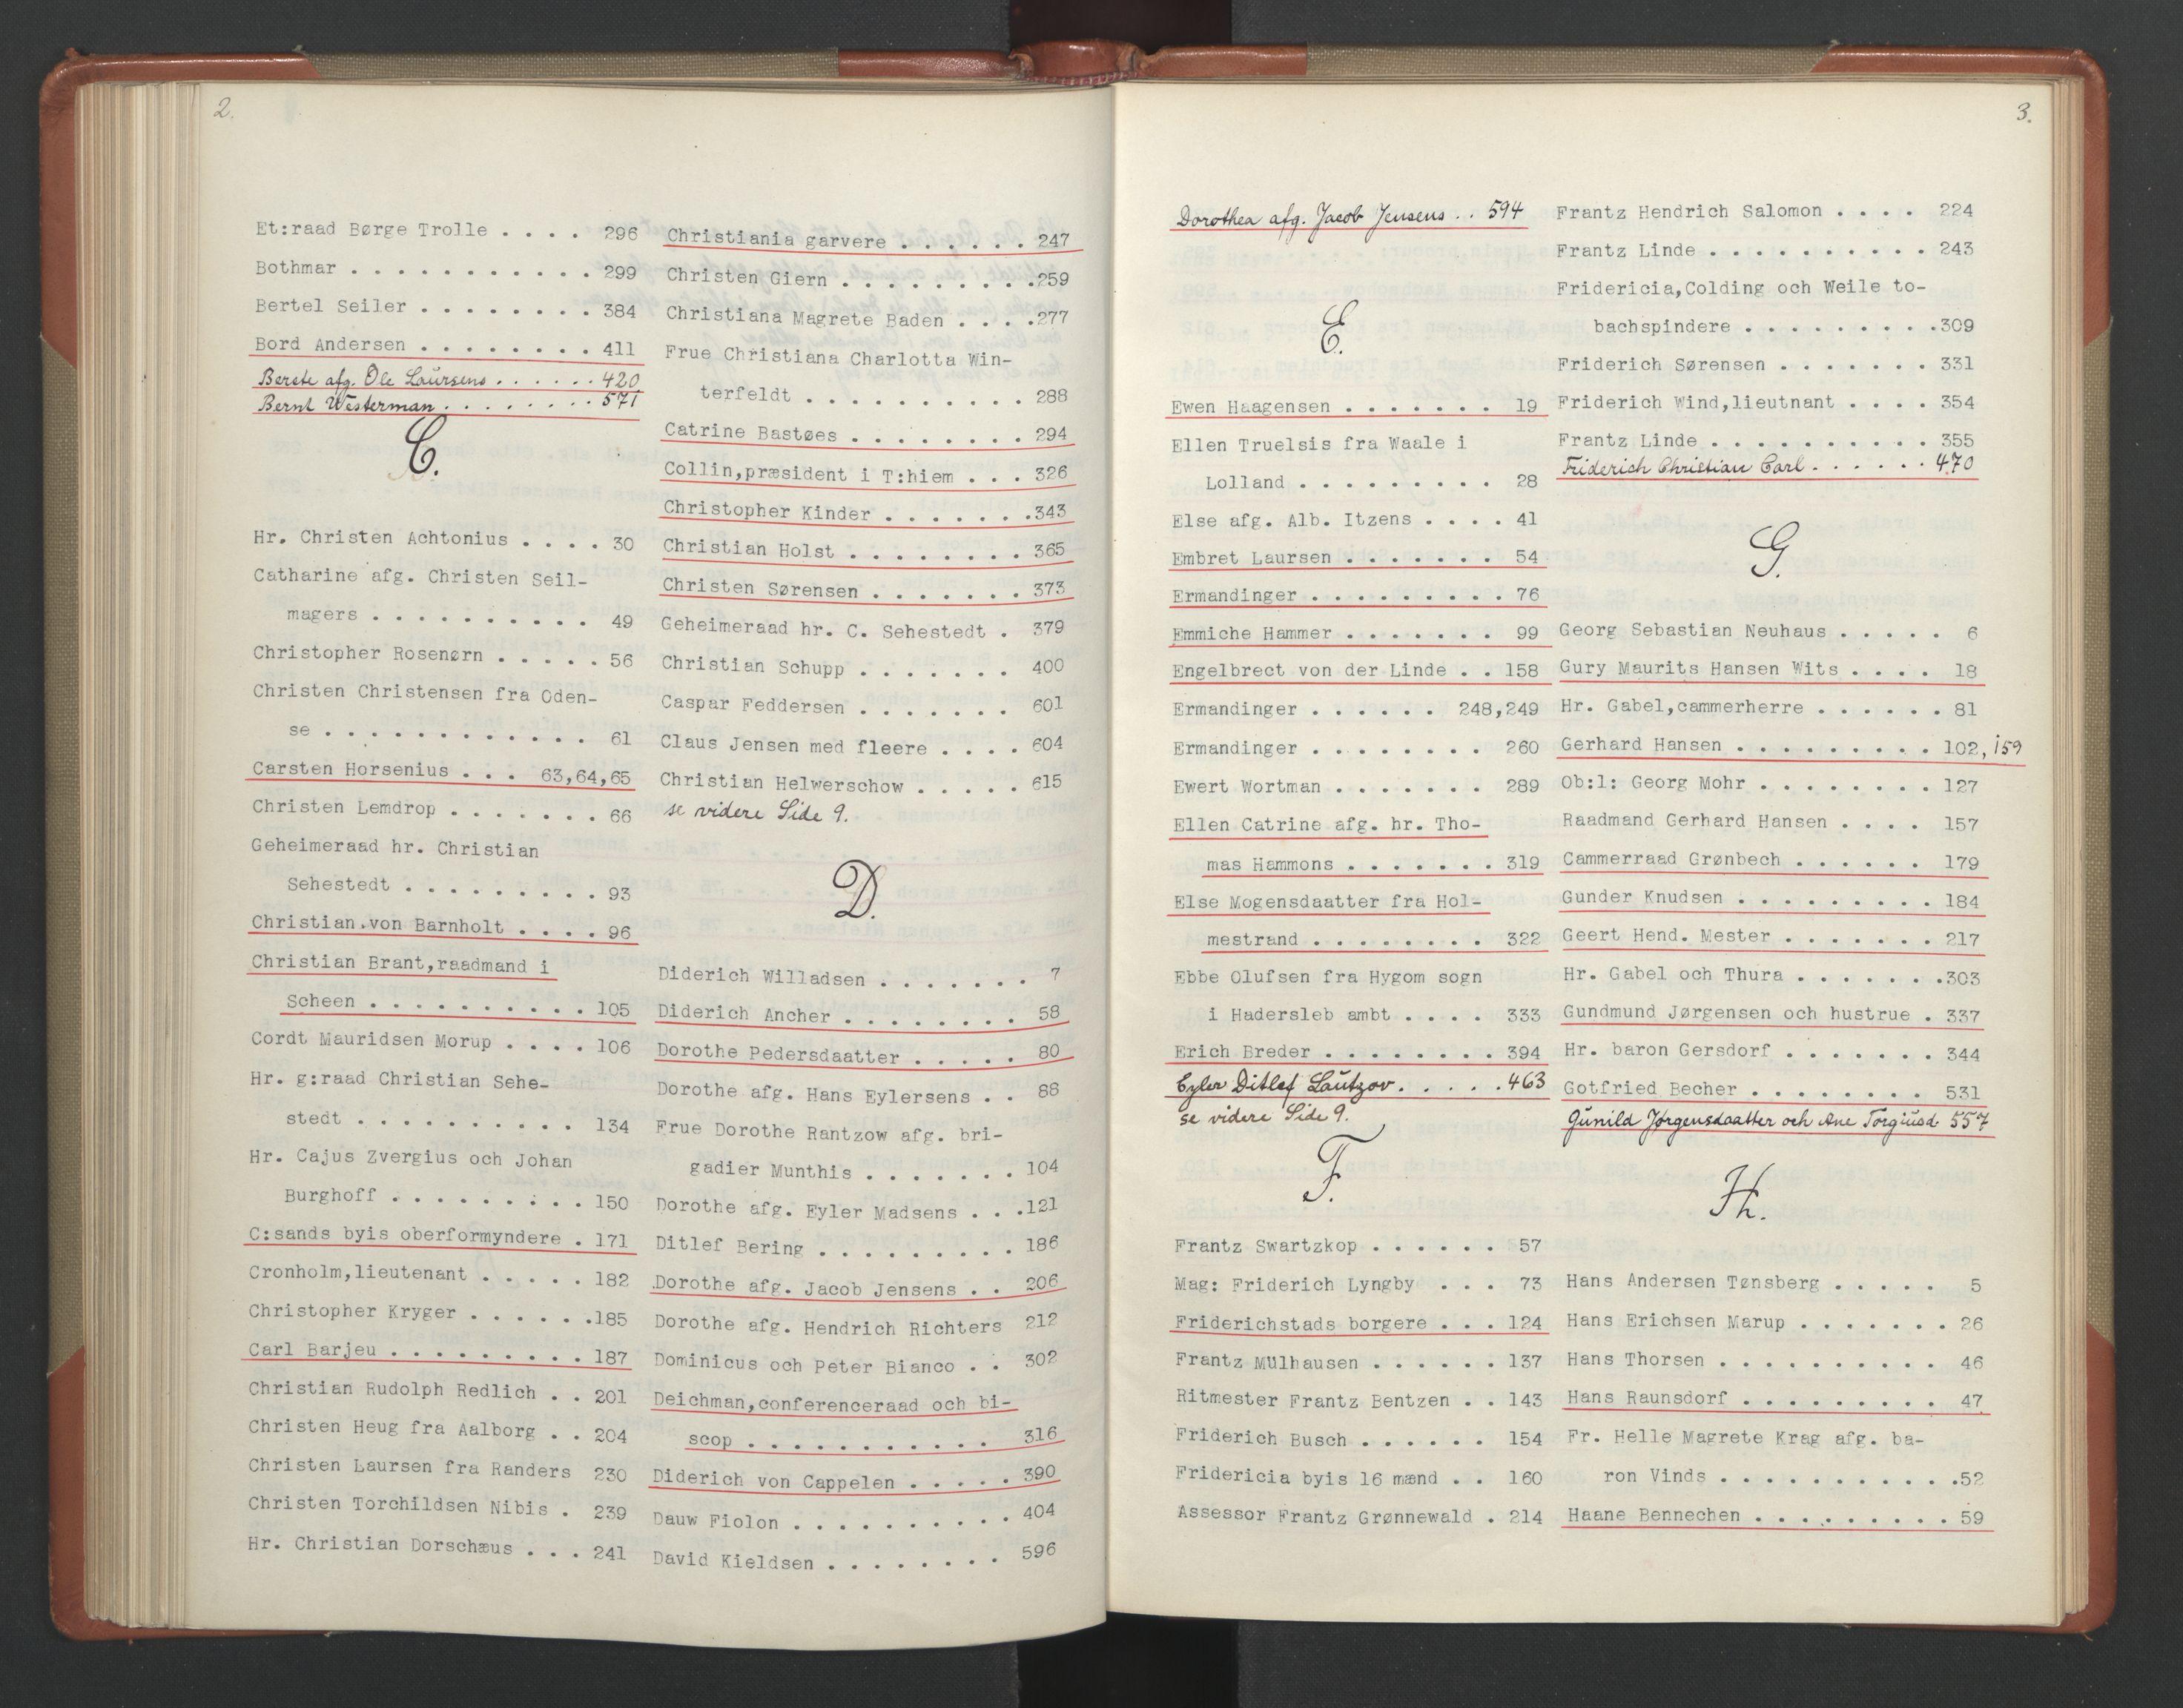 2.
Et:raad Børge Trolle . . . . 296
Bothmar . . . . . . . . . . . 299
Bertel Seiler . . . . . . . . 384
Bord Andersen . . . . . . . . 411
Berete afg. Ole Laursens . . . . . . 420
Bernt Westerman . . . . . . . . 571
C.
Hr. Christen Achtonius . . . . 30
Catharine afg. Christen Seil-
magers . . . . . . . . . . 49
Christopher Rosenørn . . . . . 56
Christen Christensen fra Oden-
se . . . . . . . . . . . . 61
Carsten Horsenius . . . 63,64,65
Christen Lemdrop . . . . . . . 66
Geheimeraad hr. Christian
Sehestedt . . . . . . . . . 93
Christian von Barnholt . . . . 96
Christian Brant,raadmand i
Scheen . . . . . . . . . . 105
Cordt Mauridsen Morup . . . . 106
Hr. g:raad Christian Sehe-
stedt . . . . . . . . . . 134
Hr. Cajus Zvergius och Johan
Burghoff . . . . . . . . . 150
C:sands byis oberformyndere . 171
Cronholm,lieutenant . . . . . 182
Christopher Kryger . . . . . .185
Carl Barjeu . . . . . . . . . 187
Christian Rudolph Redlich . . 201
Christen Heug fra Aalborg . . 204
Christen Laursen fra Randers 230
Christen Torchildsen Nibis . 239
Hr. Christian Dorschæus . . . 241
Christiania garvere . . . . . . 247
Christen Giern . . . . . . . . .259
Christiana Magrete Baden . . . .277
Frue Christiana Charlotta Win-
terfeldt . . . . . . . . . . 288
Catrine Bastøes . . . . . . . . 294
Collin,præsident i T:hiem . . . 326
Christopher Kinder . . . . . . .343
Christian Holst . . . . . . . . 365
Christen Sørensen . . . . . . . 373
Geheimeraad hr. C. Sehestedt . 379
Christian Schupp . . . . . . . 400
Caspar Feddersen . . . . . . . 601
Claus Jensen med fleere . . . . 604
Christian Helwerschow . . . . . 615
se videre Side 9.
D.
Diderich Willadsen . . . . . . . 7
Diderich Ancher . . . . . . . . 58
Dorothe Pedersdaatter . . . . . 80
Dorothe afg. Hans Eylersens . . 88
Frue Dorothe Rantzow afg. bri-
gadier Munthis . . . . . . . 104
Dorothe afg. Eyler Madsens . . .121
Ditlef Bering . . . . . . . . . 186
Dorothe afg. Jacob Jensens . . 206
Dorothe afg. Hendrich Richters 212
Dominicus och Peter Bianco . . 302
Deichman,conferenceraad och bi-
scop . . . . . . . . . . . 316
Diderich von Cappelen . . . . . 390
Dauw Fiolon . . . . . . . . . . 404
David Kieldsen . . . . . . . . 596
3.
Dorothea afg. Jacob Jensens . . 594
E.
Ewen Haagensen . . . . . . . 19
Ellen Truelsis fra Waale i
Lolland . . . . . . . . . 28
Else afg. Alb. Itzens . . . . 41
Embret Laursen . . . . . . . 54
Ermandinger . . . . . . . . . . 76
Emmiche Hammer . . . . . . . 99
Engelbrect von der Linde . . 158
Ermandinger . . . . . . 248,249
Ermandinger . . . . . . . . 260
Ewert Wortman . . . . . . . 289
Ellen Catrine afg. hr. Tho-
mas Hammons . . . . . . . 319
Else Mogensdaatter fra Hol-
mestrand . . . . . . . . . 322
Ebbe Olufsen fra Hygom sogn
i Hadersleb ambt . . . . 333
Erich Breder . . . . . . . . . 394
Eyler Ditlef Lautzov . . . . . 463
se videre Side 9.
F.
Frantz Swartzkop . . . . . . 57
Mag: Friderich Lyngby . . . 73
Friderichstads borgere . . . 124
Frantz Mülhausen . . . . . . 137
Ritmester Frantz Bentzen . . 143
Friderich Busch . . . . . . 154
Fridericia byis 16 mænd . . 160
Assessor Frantz Grønnewald . 214
Frantz Hendrich Salomon . . . . 224
Frantz Linde . . . . . . . . . . 243
Fridericia,Colding och Weile to-
bachspindere . . . . . . . . . .309
Friderich Sørensen . . . . . . . 331
Friderich Wind,lieutnant . . . . 354
Frantz Linde . . . . . . . . . . 355
Friderich Christian Carl . . . . . . 470
G.
Georg Sebastian Neuhaus . . . . . 6
Gury Maurits Hansen Wits . . . . 18
Hr. Gabel,cammerherre . . . . . . 81
Gerhard Hansen . . . . . . . . . 102, 159
Ob:l: Georg Mohr . . . . . . . . 127
Raadmand Gerhard Hansen . . . . 157
Cammerraad Grønbech . . . . . . 179
Gunder Knudsen . . . . . . . . . 184
Geert Hend. Mester . . . . . . . 217
Hr. Gabel och Thura . . . . . . .303
Gundmund Jørgensen och hustrue . 337
Hr. baron Gersdorf . . . . . . . 344
Gotfried Becher . . . . . . . . 531
Gunild Jørgensdaatter och Ane Torgiusd. 557
H.
Hans Andersen Tønsberg . . . . . 5
Hans Erichsen Marup . . . . . . . 26
Hans Thorsen . . . . . . . . . . 46
Hans Raunsdorf . . . . . . . . . 47
Fr. Helle Magrete Krag afg. ba-
ron Vinds . . . . . . . . . . .52
Haane Bennechen . . . . . . . . . 59